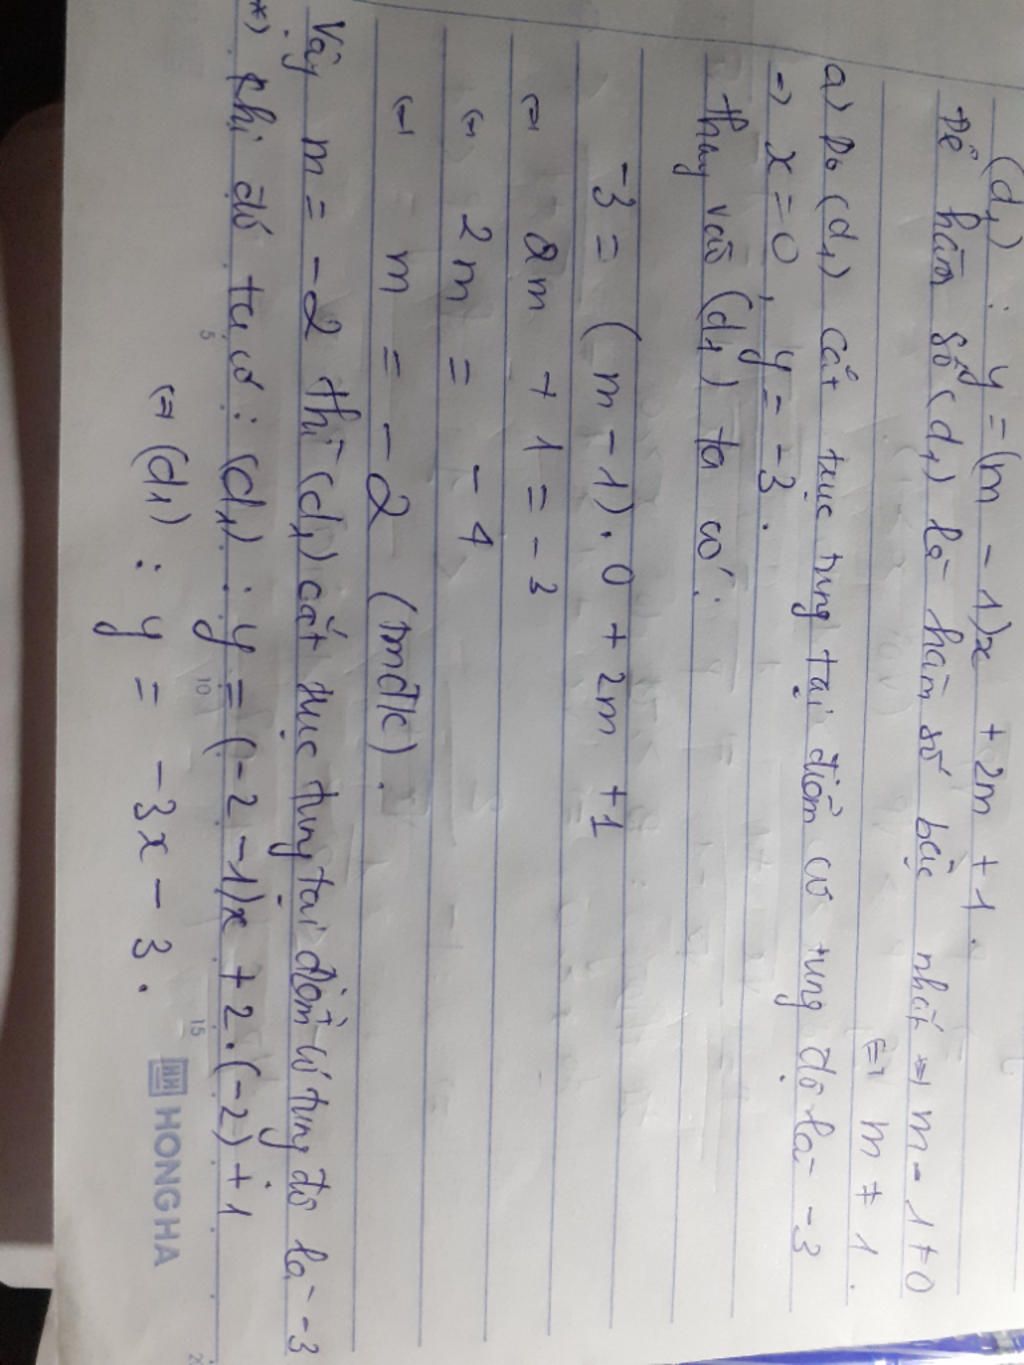 (d₁) : y = (m - 1)x + 2m + 1.
Để hàm số (d₁) là hàm số bậc nhất ⇔ m - 1 ≠ 0
⇔ m ≠ 1.
a) Do (d₁) cắt trục tung tại điểm có tung độ là -3
⇒ x = 0, y = -3.
Thay vào (d₁) ta có:
-3 = (m - 1).0 + 2m + 1
⇔ 2m + 1 = -3
⇔ 2m = -4
⇔ m = -2 (tmđk).
Vậy m = -2 thì (d₁) cắt trục tung tại điểm có tung độ là -3
*) Khi đó ta có: (d₁): y = (-2 - 1)x + 2.(-2) + 1
⇔ (d₁) : y = -3x - 3.
5 10 15 20
HONG HA